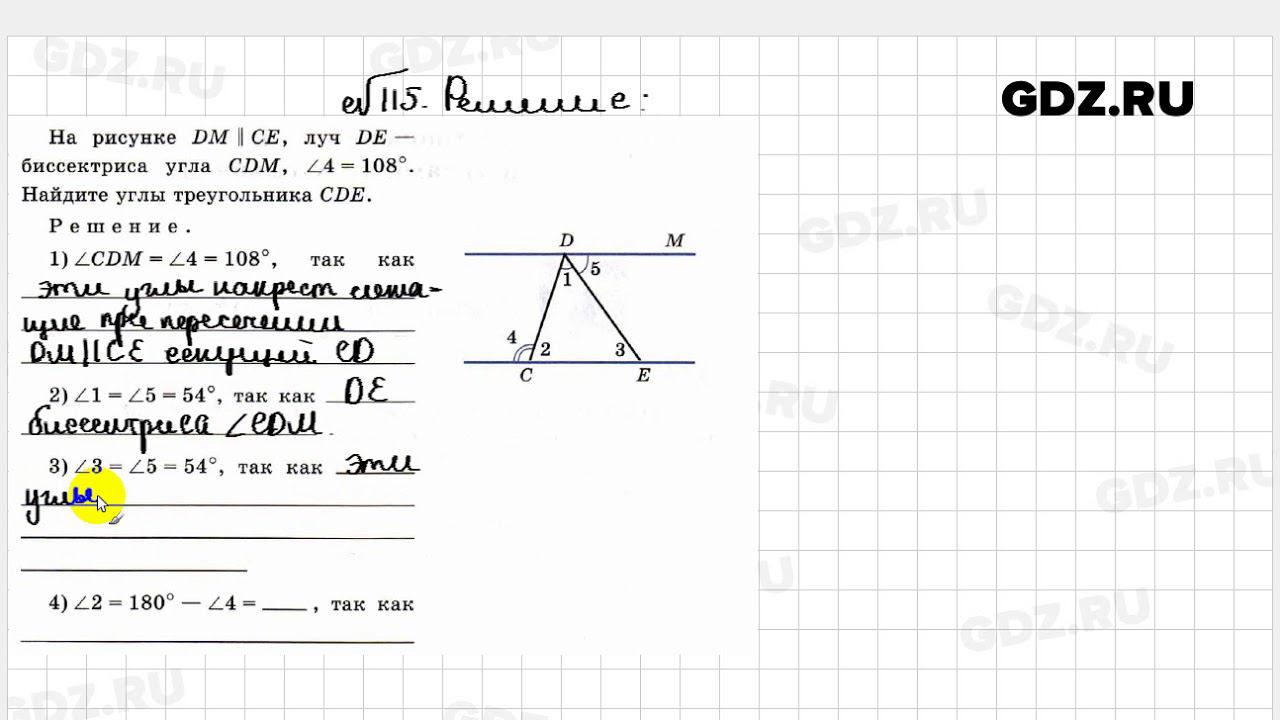 GDZ.RU
№115. Решение:
На рисунке DM ∥ CE, луч DE —
биссектриса угла CDM, ∠4 = 108°.
Найдите углы треугольника CDE.
Решение.
1) ∠CDM = ∠4 = 108°, так как
эти углы накрест лежа-
щие при пересечении
DM||CE секущей CD
2) ∠1 = ∠5 = 54°, так как DE
биссектриса ∠CDM.
3) ∠3 = ∠5 = 54°, так как эти
углы
4) ∠2 = 180° — ∠4 = ____ , так как
D M
1 5
4 2 3
C E
GDZ.RU
GDZ.RU
GDZ.RU
GDZ.RU
GDZ.RU
GDZ.RU
GDZ.RU